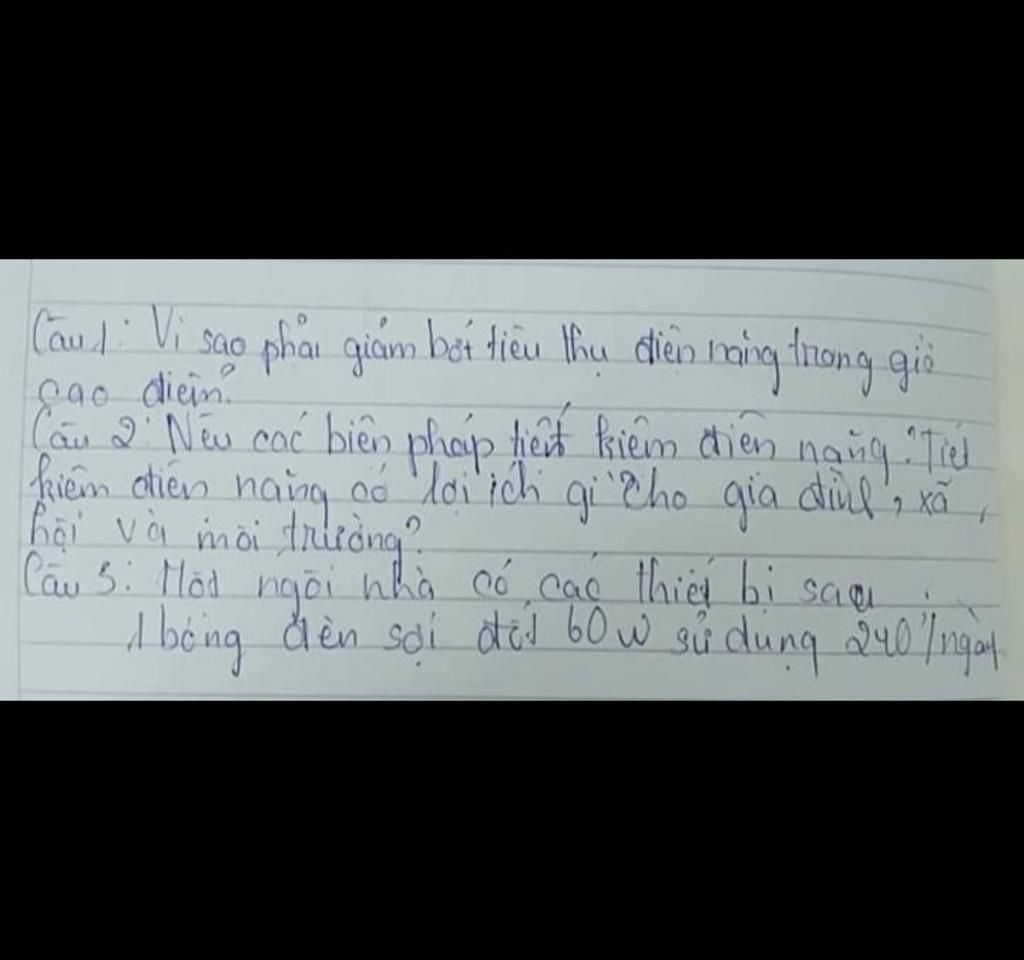 Câu 1: Vì sao phải giảm bớt tiêu thụ điện năng trong giờ
cao điểm?
Câu 2: Nêu các biện pháp tiết kiệm điện năng. Tiết
kiệm điện năng có lợi ích gì cho gia đình, xã
hội và môi trường?
Câu 3: Một ngôi nhà có các thiết bị sau:
1 bóng đèn sợi đốt 60W sử dụng 240'/ngày